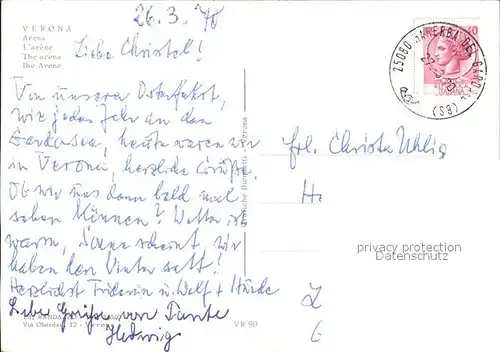 26.3.70
VERONA
Arena
L'arène
The arena
Die Arene
Liebe Christel!
Von unserer Osterfahrt,
wie jedes Jahr an den
Gardasee, heute waren wir
in Verona, herzliche Grüße.
Ob wir uns dann bald mal
sehen können? Wetter ist
warm, Sonne scheint, wir
haben den Winter satt!
Herzlichst Friderun u. Wolf +
Liebe Grüße von Tante
Hedwig
Via Oberdan, 12 - Verona
VR 90
Verona
Frl. Christa Uhlig
H
L
G
25080 MANERBA DEL GARDA
(BS)
privacy protection
Datenschutz